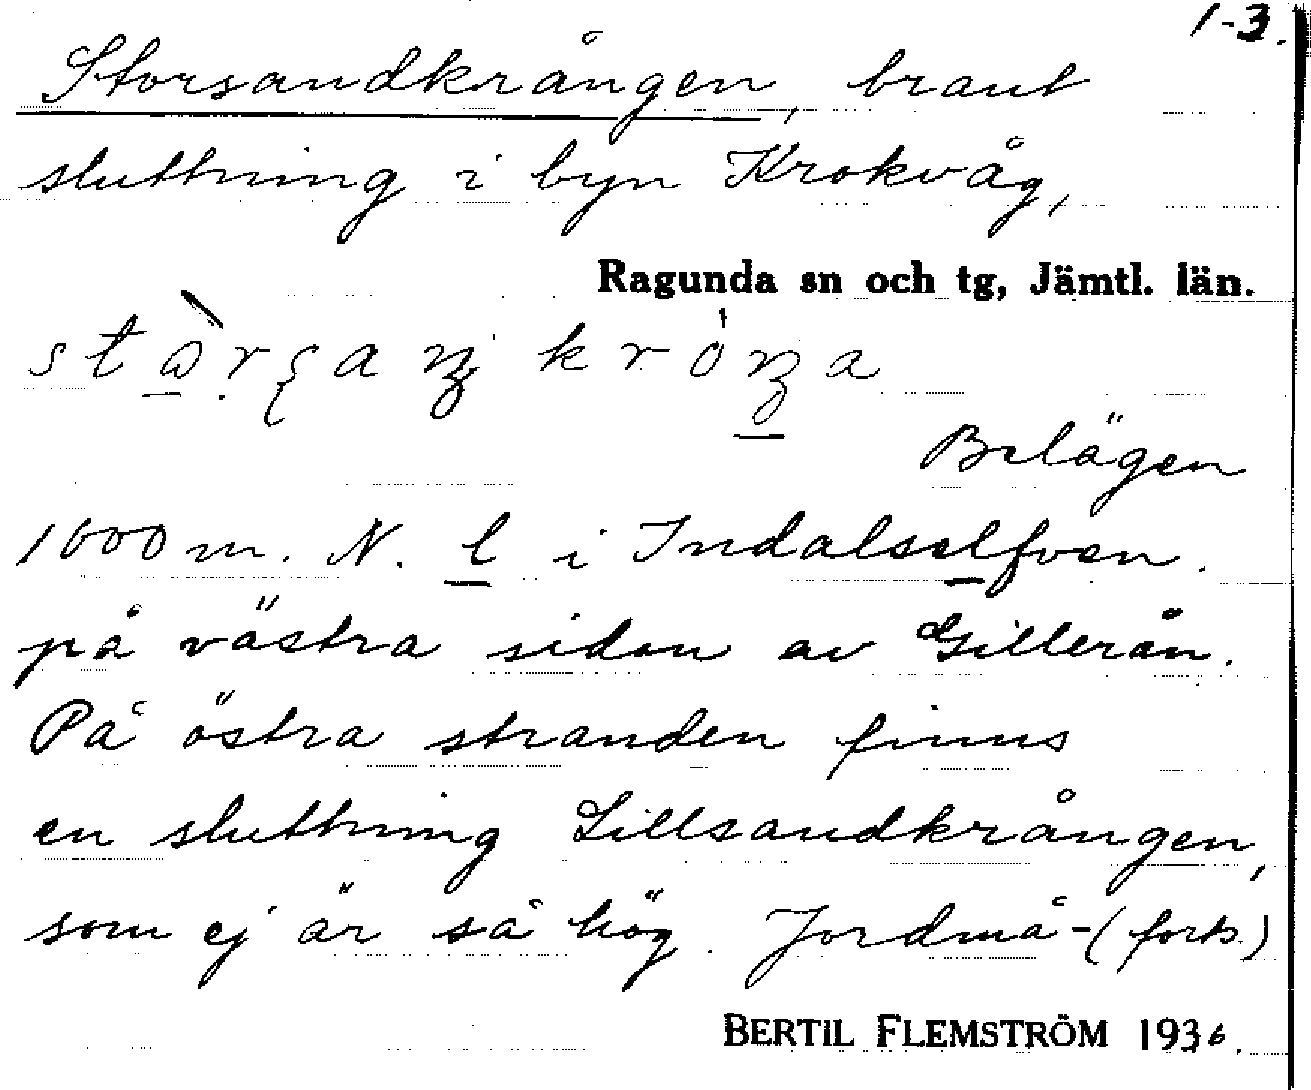 1-3.
Storsandkrången, brant
sluttning i byn Krokvåg,
Ragunda sn och tg, Jämtl. län.
Belägen
1600 m. N. l i Indalselfven.
på västra sidan av Gillerån.
På östra stranden finns
en sluttning Lillsandkrången,
som ej är så hög. Jordmå-(forts.)
BERTIL FLEMSTRÖM 1936.